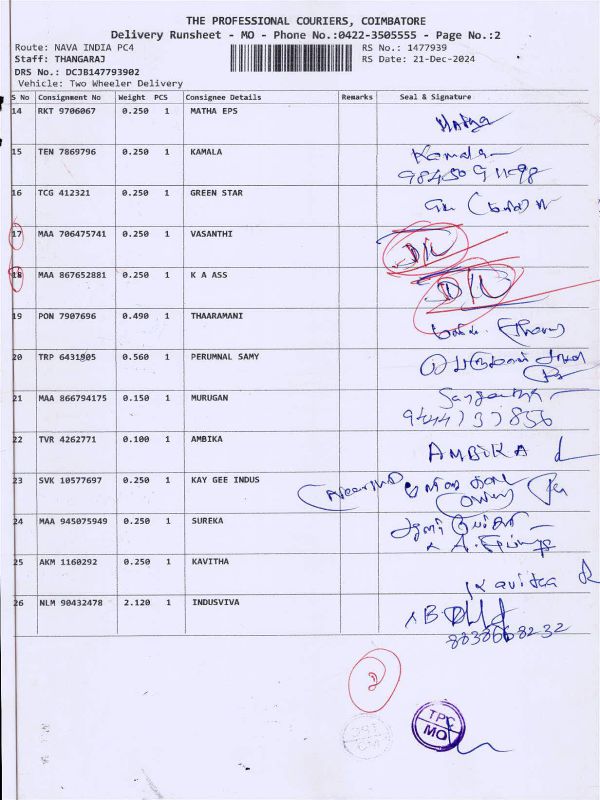 THE PROFESSIONAL COURIERS, COIMBATORE
Delivery Runsheet - MO - Phone No.:0422-3505555 - Page No.:2
Route: NAVA INDIA PC4 RS No.: 1477939
Staff: THANGARAJ RS Date: 21-Dec-2024
DRS No.: DCJB147793902
Vehicle: Two Wheeler Delivery
S No Consignment No Weight PCS Consignee Details Remarks Seal & Signature
14 RKT 9706067 0.250 1 MATHA EPS Matha
15 TEN 7869796 0.250 1 KAMALA Kamala
16 TCG 412321 0.250 1 GREEN STAR
17 MAA 706475741 0.250 1 VASANTHI
18 MAA 867652881 0.250 1 K A ASS
19 PON 7907696 0.490 1 THAARAMANI
20 TRP 6431805 0.560 1 PERUMNAL SAMY
21 MAA 866794175 0.150 1 MURUGAN
22 TVR 4262771 0.100 1 AMBIKA AMBIKA
23 SVK 10577697 0.250 1 KAY GEE INDUS
24 MAA 945075949 0.250 1 SUREKA
25 AKM 1160292 0.250 1 KAVITHA Kavitha
26 NLM 90432478 2.120 1 INDUSVIVA
8838668232
2
TPC
MO